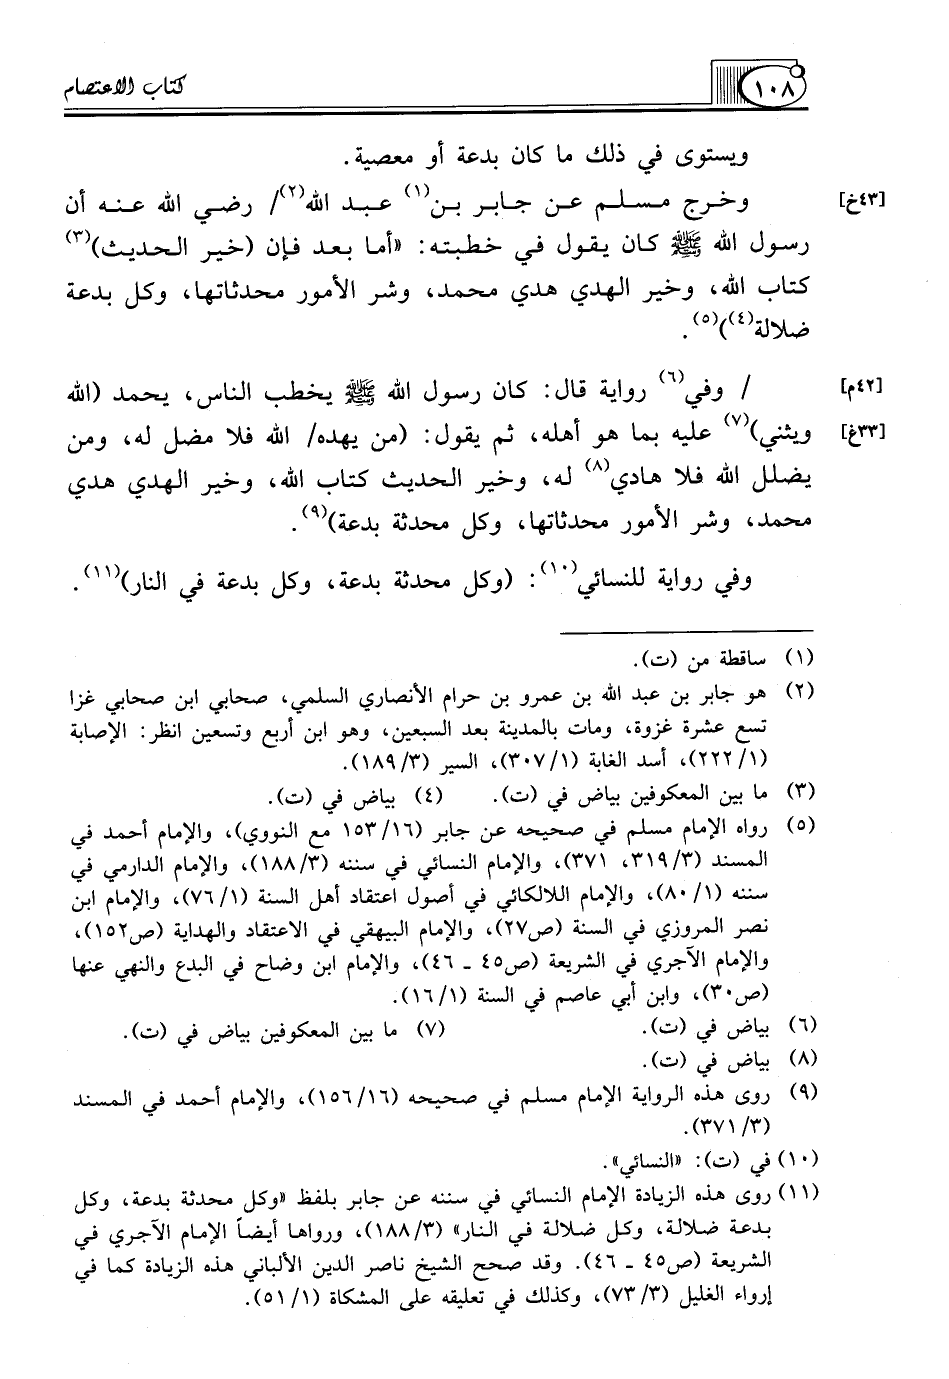 ١٠٨
كتاب الاعتصام
ويستوى في ذلك ما كان بدعة أو معصية.
[٤٣خ] وخرج مسلم عن جابر بن(١) عبد الله(٢)/ رضي الله عنه أن
رسول الله ﷺ كان يقول في خطبته: «أما بعد فإن (خير الحديث)(٣)
كتاب الله، وخير الهدي هدي محمد، وشر الأمور محدثاتها، وكل بدعة
ضلالة(٤)»(٥).
[٤٢م] / وفي(٦) رواية قال: كان رسول الله ﷺ يخطب الناس، يحمد (الله
[٣٣غ] ويثني)(٧) عليه بما هو أهله، ثم يقول: (من يهده/ الله فلا مضل له، ومن
يضلل الله فلا هادي(٨) له، وخير الحديث كتاب الله، وخير الهدي هدي
محمد، وشر الأمور محدثاتها، وكل محدثة بدعة)(٩).
وفي رواية للنسائي(١٠): (وكل محدثة بدعة، وكل بدعة في النار)(١١).
(١) ساقطة من (ت).
(٢) هو جابر بن عبد الله بن عمرو بن حرام الأنصاري السلمي، صحابي ابن صحابي غزا
تسع عشرة غزوة، ومات بالمدينة بعد السبعين، وهو ابن أربع وتسعين انظر: الإصابة
(١/٢٢٢)، أسد الغابة (١/٣٠٧)، السير (٣/١٨٩).
(٣) ما بين المعكوفين بياض في (ت). (٤) بياض في (ت).
(٥) رواه الإمام مسلم في صحيحه عن جابر (١٦/١٥٣ مع النووي)، والإمام أحمد في
المسند (٣/٣١٩، ٣٧١)، والإمام النسائي في سننه (٣/١٨٨)، والإمام الدارمي في
سننه (١/٨٠)، والإمام اللالكائي في أصول اعتقاد أهل السنة (١/٧٦)، والإمام ابن
نصر المروزي في السنة (ص٢٧)، والإمام البيهقي في الاعتقاد والهداية (ص١٥٢)،
والإمام الآجري في الشريعة (ص٤٥ ـ ٤٦)، والإمام ابن وضاح في البدع والنهي عنها
(ص٣٠)، وابن أبي عاصم في السنة (١/١٦).
(٦) بياض في (ت). (٧) ما بين المعكوفين بياض في (ت).
(٨) بياض في (ت).
(٩) روى هذه الرواية الإمام مسلم في صحيحه (١٦/١٥٦)، والإمام أحمد في المسند
(٣/٣٧١).
(١٠) في (ت): «النسائي».
(١١) روى هذه الزيادة الإمام النسائي في سننه عن جابر بلفظ «وكل محدثة بدعة، وكل
بدعة ضلالة، وكل ضلالة في النار» (٣/١٨٨)، ورواها أيضاً الإمام الآجري في
الشريعة (ص٤٥ ـ ٤٦). وقد صحح الشيخ ناصر الدين الألباني هذه الزيادة كما في
إرواء الغليل (٣/٧٣)، وكذلك في تعليقه على المشكاة (١/٥١).